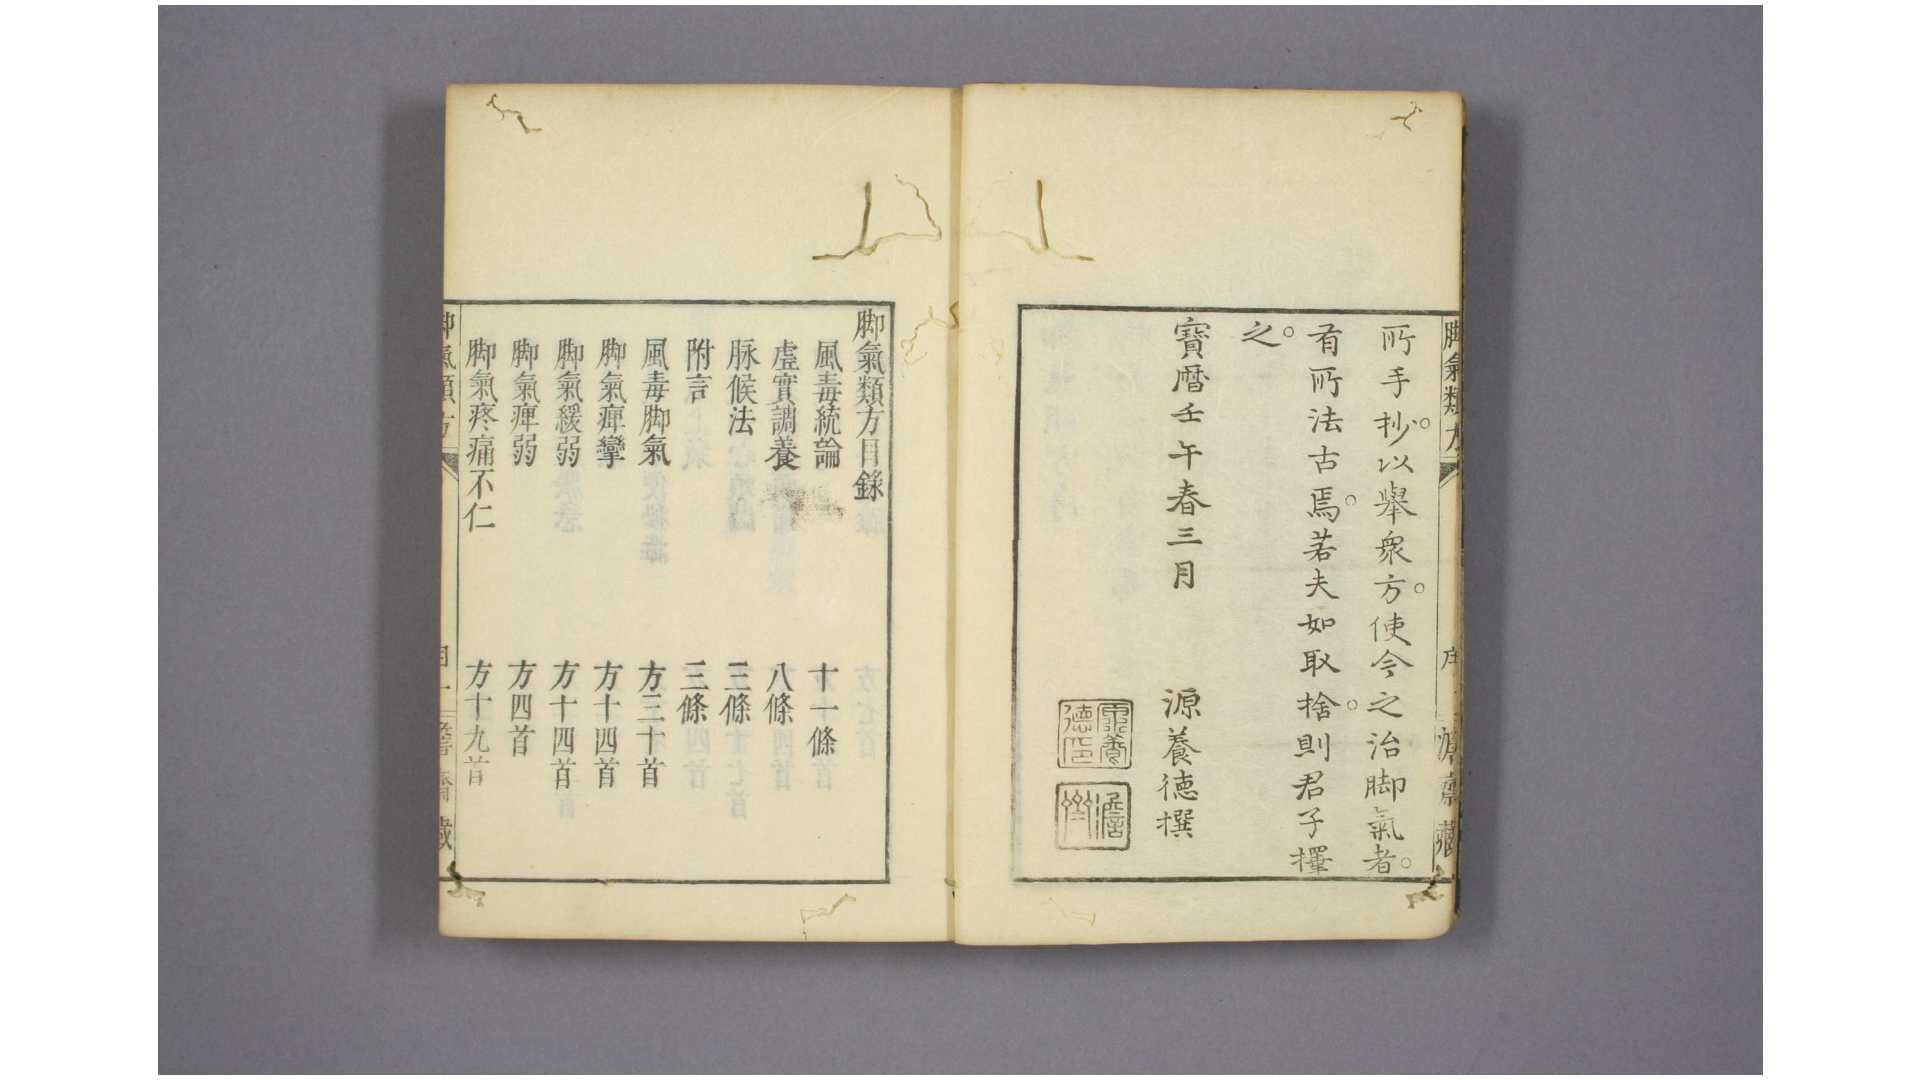 脚氣類方
序
所手抄。以舉衆方。使令之治脚氣者。
有所法古焉。若夫如取捨。則君子擇
之。
寶暦壬午春三月
源養德撰
脚氣類方目録
風毒統論 十一條
虛實調養 八條
脉候法 三條
附言 三條
風毒脚氣 方三十首
脚氣痺攣 方十四首
脚氣緩弱 方十四首
脚氣痺弱 方四首
脚氣疼痛不仁 方十九首